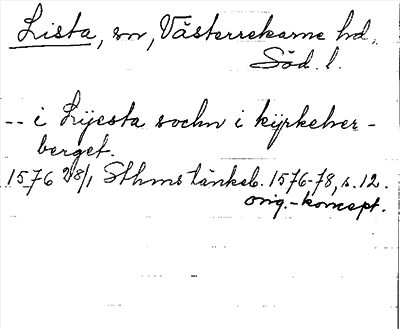 Lista, sn, Västerrekarne hd,
Söd. l.
-- i Lijesta sochn i kijrkeher-
berget.
1576 28/1 Sthms tänkeb. 1576-78, s. 12.
orig.-koncept.